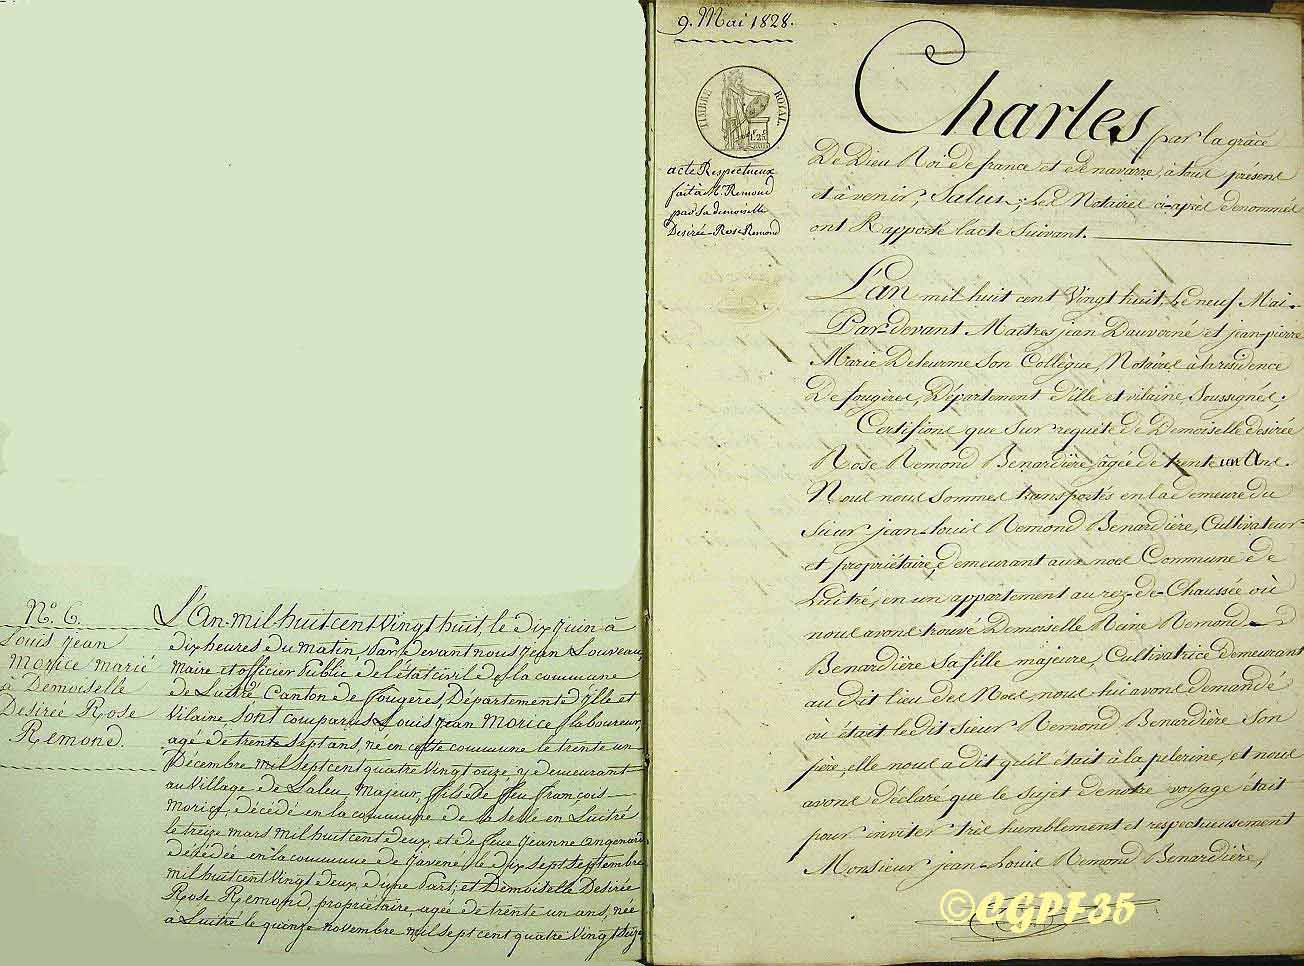 N.º 6.
Louis Jean
Morice marié
à Demoiselle
Desirée Rose
Remond.
L'An mil huit cent vingt huit, le dix Juin à
dix heures du matin Par Devant nous Jean Louveau,
maire et officier Public de l'état civil de la commune
de Luitré Canton de Fougères, Département d'Ille et
Vilaine Sont comparus Louis Jean Morice, laboureur,
agé de trente sept ans, né en cette commune le trente un
Décembre mil sept cent quatre vingt onze, y demeurant
au Village de Laleu, Majeur, fils de feu François
Morice, décédé en la commune de la Selle en Luitré
le treize mars mil huit cent deux, et de feue Jeanne Angenard
décédée en la commune de Javené, le dix sept septembre
mil huit cent vingt deux, d'une Part; et Demoiselle Desirée
Rose Remond, propriétaire, agée de trente un ans, née
à Luitré le quinze novembre mil sept cent quatre vingt seize
9. Mai 1828.
TIMBRE ROYAL.
1F. 25
acte Respectueux
fait à Mr. Remond
par Sa demoiselle
Desirée-Rose Remond
Charles par la grâce
De Dieu Roi de france et de navarre, à tous présens
et à venir, Salut; Les Notaires ci-après denommés
ont Rapporté l'acte Suivant.
L'an mil huit cent Vingt huit, Le neuf Mai.
Par-devant Maîtres jean Dauverné et jean-pierre
Marie Deleurme Son Collègue, Notaires à la residence
De fougères, Département d'ille et vilaine, Soussignés.
Certifions que Sur requête de Demoiselle desirée
Rose Remond Benardière, âgée de trente un Ans.
Nous nous Sommes transportés en la demeure du
Sieur jean-louis Remond Benardière, Cultivateur
et propriétaire, demeurant aux noes Commune de
Luitré, en un appartement au rez-de-Chaussée où
nous avons trouvé Demoiselle Reine Remond
Benardière Sa fille majeure, Cultivatrice demeurant
au dit lieu des Noes nous lui avons demandé
où était ledit Sieur Remond Benardière Son
père, elle nous a dit qu'il était à la pelerine, et nous
avons déclaré que le Sujet de notre voyage était
pour inviter très humblement et respectueusement
Monsieur jean-Louis Remond Benardière,
©CGPF35